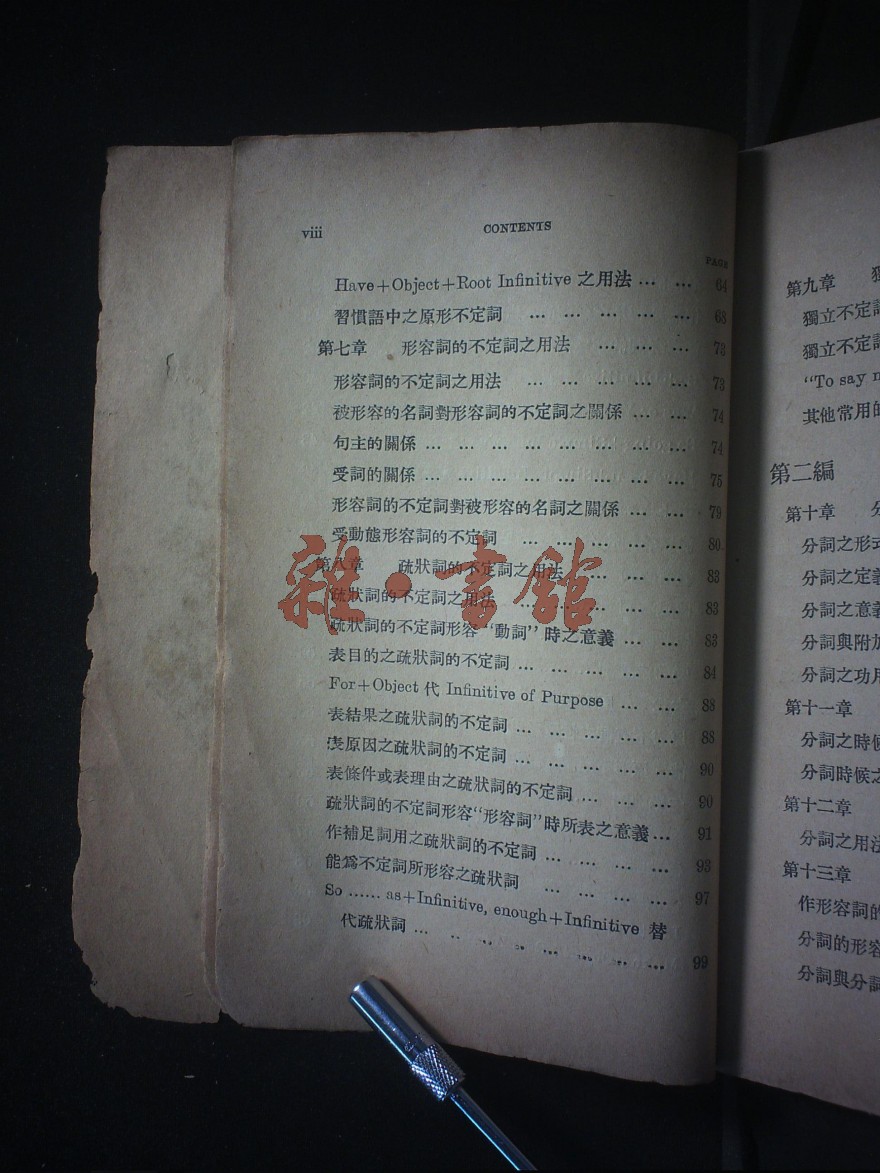 viii CONTENTS
PAGE
Have+Object+Root Infinitive 之用法 … … 64
習慣語中之原形不定詞 … … … … … 68
第七章 形容詞的不定詞之用法 … … … 73
形容詞的不定詞之用法 … … … … … 73
被形容的名詞對形容詞的不定詞之關係 … … 74
句主的關係 … … … … … … … … 74
受詞的關係 … … … … … … … … 75
形容詞的不定詞對被形容的名詞之關係 … … 79
受動態形容詞的不定詞 … … … … … 80
第八章 疏狀詞的不定詞之用法 … … … 83
疏狀詞的不定詞之用法 … … … … … 83
疏狀詞的不定詞形容“動詞”時之意義 … … 83
表目的之疏狀詞的不定詞 … … … … … 84
For+Object 代 Infinitive of Purpose … … 88
表結果之疏狀詞的不定詞 … … … … … 88
表原因之疏狀詞的不定詞 … … … … … 90
表條件或表理由之疏狀詞的不定詞 … … … 90
疏狀詞的不定詞形容“形容詞”時所表之意義 … 91
作補足詞用之疏狀詞的不定詞 … … … … 93
能爲不定詞所形容之疏狀詞 … … … … 97
So …… as+Infinitive, enough+Infinitive 替
代疏狀詞 … … … … … … … … 99
雜·書館
第九章
獨立不定
獨立不定
“To say
其他常用的
第二編
第十章
分詞之形式
分詞之定義
分詞之意義
分詞與附加
分詞之功用
第十一章
分詞之時候
分詞時候之
第十二章
分詞之用法
第十三章
作形容詞的
分詞的形容
分詞與分詞